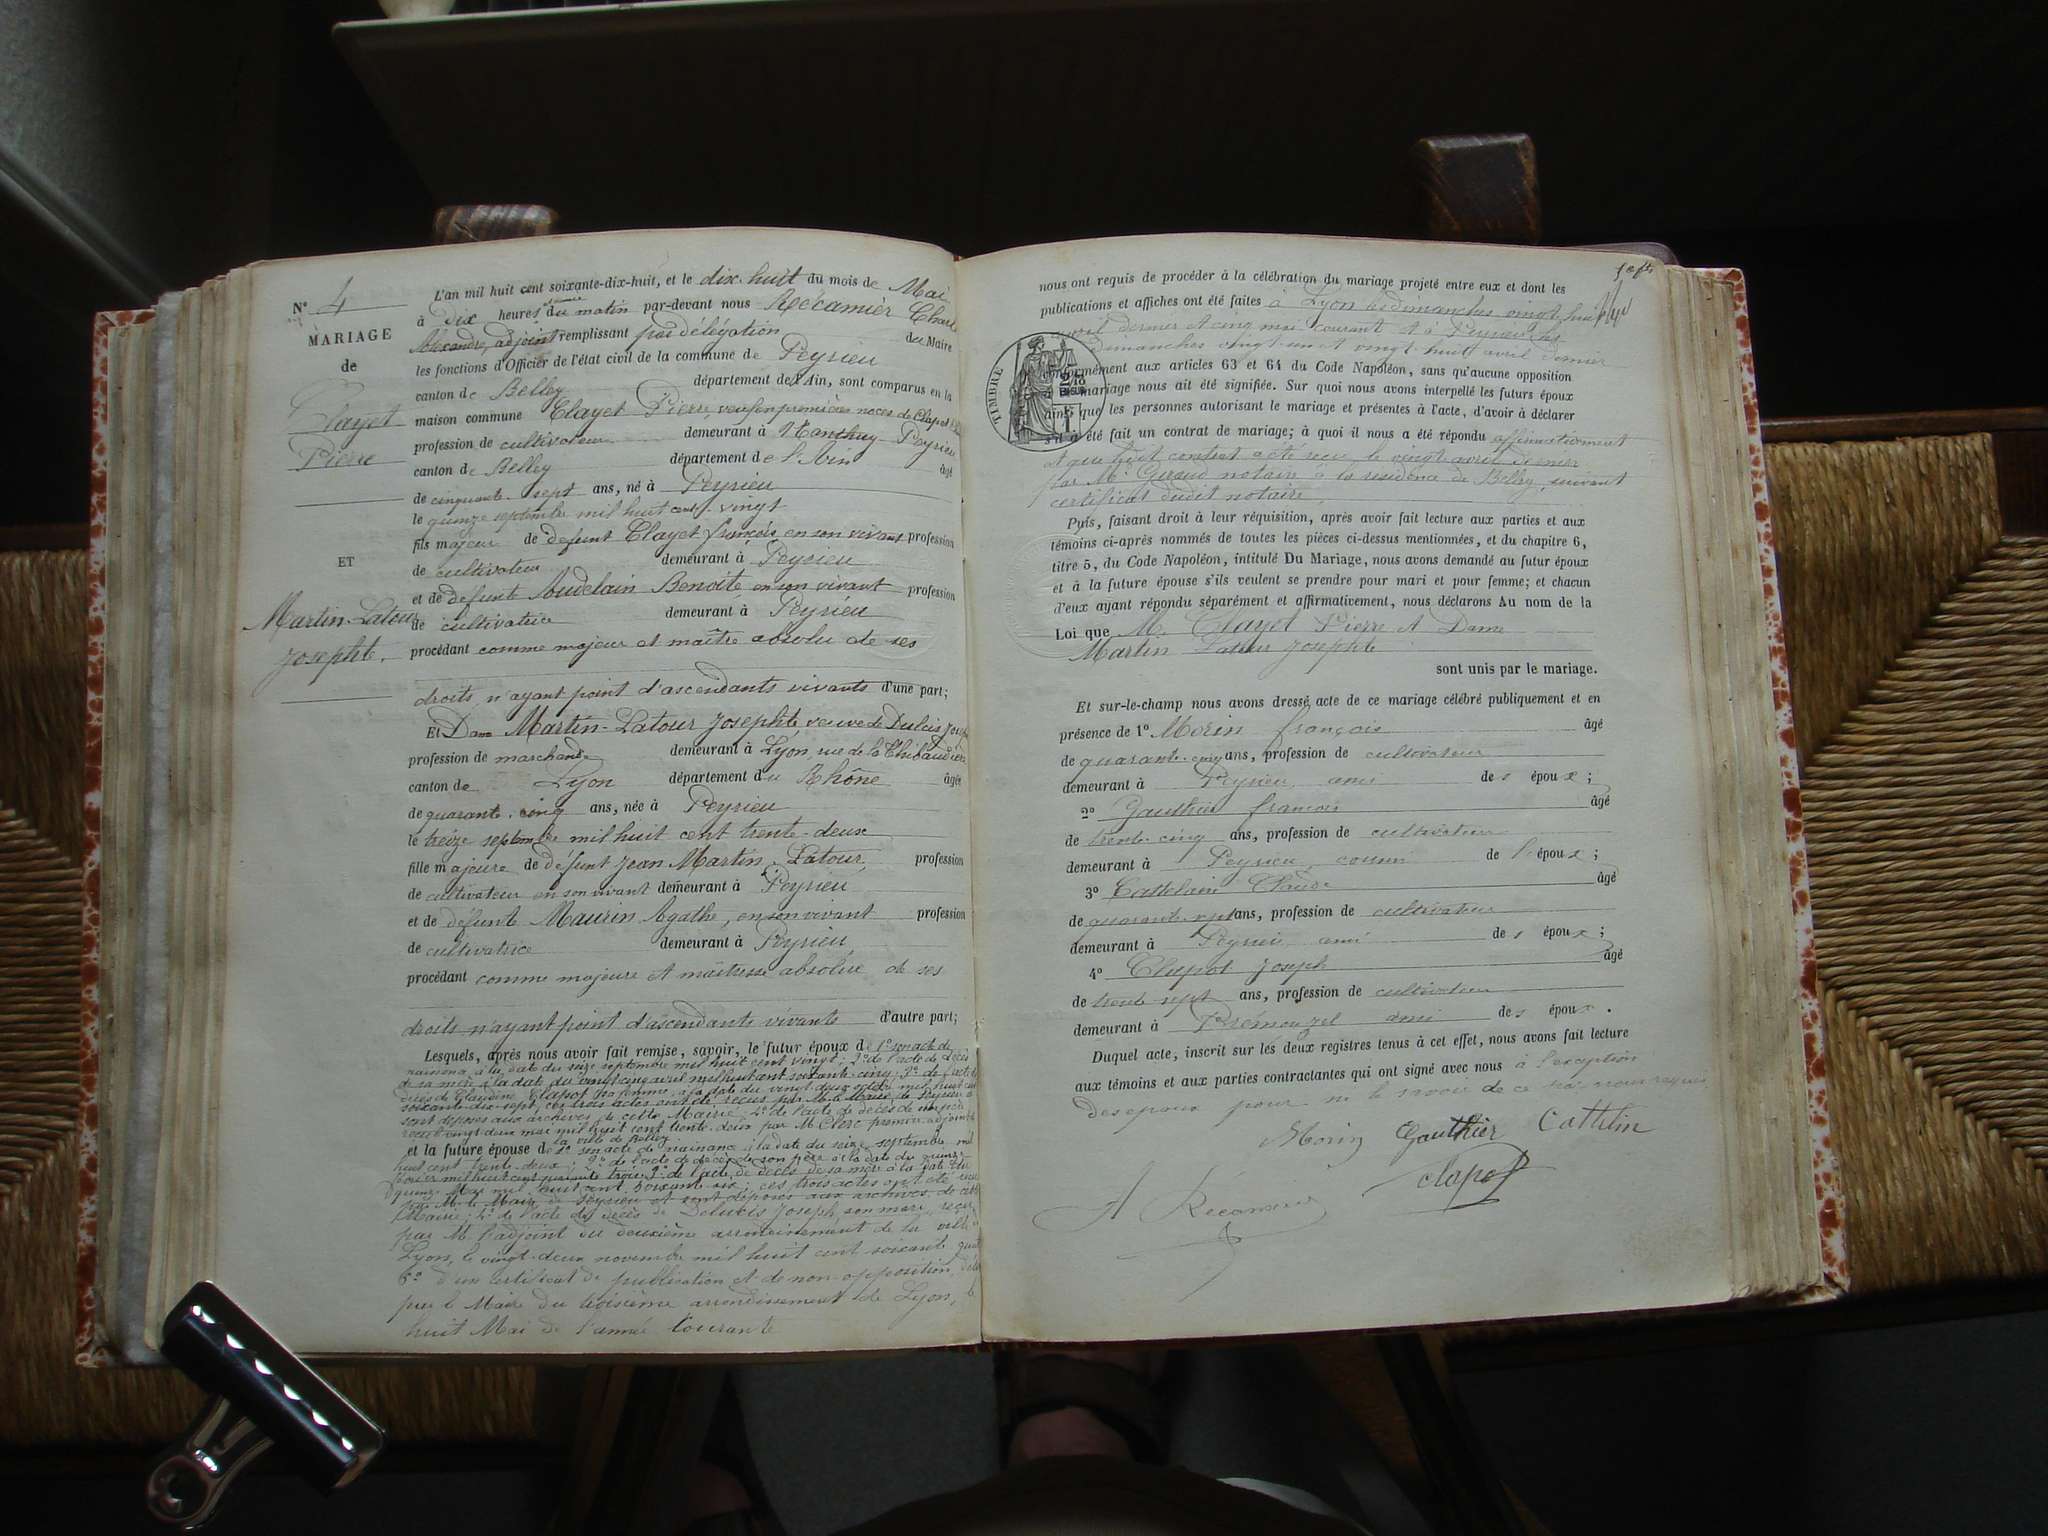 N° 4
MARIAGE
de
Clayet
Pierre
ET
Martin-Latour
Josephte.
L'an mil huit cent soixante-dix-huit, et le dix-huit du mois de Mai
à dix heures du matin par-devant nous Récamier Charles
Alexandre, adjoint remplissant par délégation du Maire
les fonctions d'Officier de l'état civil de la commune de Peyrieu
canton de Belley département de l'Ain, sont comparus en la
maison commune Clayet Pierre, veuf en premières noces de Clapot
profession de cultivateur demeurant à Peyrieu
canton de Belley département de l'Ain âgé
de cinquante-sept ans, né à Peyrieu
le quinze septembre mil huit cent vingt
fils majeur de defunt Clayet françois en son vivant profession
de cultivateur demeurant à Peyrieu
et de defunte Audelain Benoite en son vivant profession
de cultivatrice demeurant à Peyrieu
procédant comme majeur et maître absolu de ses
droits n'ayant point d'ascendants vivants d'une part;
Et Dame Martin-Latour Josephte, veuve de
profession de marchande demeurant à Lyon, rue de la Thibaudière
canton de Lyon département du Rhône âgée
de quarante-cinq ans, née à Peyrieu
le treize septembre mil huit cent trente-deux
fille majeure de défunt Jean Martin-Latour, profession
de cultivateur en son vivant demeurant à Peyrieu
et de défunte Maurin Agathe, en son vivant profession
de cultivatrice demeurant à Peyrieu
procédant comme majeure et maîtresse absolue de ses
droits n'ayant point d'ascendants vivants d'autre part;
Lesquels, après nous avoir fait remise, savoir, le futur époux de 1° son acte de
naissance à la date du seize septembre mil huit cent vingt; 2° de l'acte de décès
de sa mère à la date du vingt cinq avril mil huit cent soixante-cinq; 3° de l'acte de
décès de Claudine Clapot sa femme à la date du vingt deux mil huit cent
soixante-dix-sept, ces trois actes ont été reçus par M. le Maire de Peyrieu et
sont déposés aux archives de cette Mairie; 4° de l'acte de décès de son père
vingt deux mai mil huit cent trente-deux par M. Clerc premier adjoint de
la ville de Belley
et la future épouse de 1° son acte de naissance à la date du seize septembre mil
huit cent trente-deux; 2° de l'acte de décès de son père à la date du quinze
mil huit cent trois; 3° de l'acte de décès de sa mère à la date du
quinze Mai mil huit cent soixante-six; ces trois actes ont été reçus
par M. le Maire de Peyrieu et sont déposés aux archives de cette
Mairie; 4° de l'acte de décès de Joseph son mari, reçu
par M. l'adjoint du deuxième arrondissement de la ville de
Lyon, le vingt-deux novembre mil huit cent soixante
d'un certificat de publication et de non-opposition
par le Maire du troisième arrondissement de Lyon, le
huit Mai de l'année courante
nous ont requis de procéder à la célébration du mariage projeté entre eux et dont les
publications et affiches ont été faites à Lyon les dimanches vingt-huit
avril dernier et cinq mai courant et à Peyrieu les
dimanches vingt-un et vingt-huit avril dernier
conformément aux articles 63 et 64 du Code Napoléon, sans qu'aucune opposition
mariage nous ait été signifiée. Sur quoi nous avons interpellé les futurs époux
ainsi que les personnes autorisant le mariage et présentes à l'acte, d'avoir à déclarer
s'il a été fait un contrat de mariage; à quoi il nous a été répondu affirmativement
et que ledit contrat a été reçu le vingt avril dernier
par Me Giraud notaire à la résidence de Belley, suivant
certificat dudit notaire
TIMBRE
Puis, faisant droit à leur réquisition, après avoir fait lecture aux parties et aux
témoins ci-après nommés de toutes les pièces ci-dessus mentionnées, et du chapitre 6,
titre 5, du Code Napoléon, intitulé Du Mariage, nous avons demandé au futur époux
et à la future épouse s'ils veulent se prendre pour mari et pour femme; et chacun
d'eux ayant répondu séparément et affirmativement, nous déclarons Au nom de la
Loi que M. Clayet Pierre et Dame
Martin Latour Josephte
sont unis par le mariage.
Et sur-le-champ nous avons dressé acte de ce mariage célébré publiquement et en
présence de 1° Morin françois âgé
de quarante-cinq ans, profession de cultivateur
demeurant à Peyrieu ami des époux;
2° Gauthier francois âgé
de trente-cinq ans, profession de cultivateur
demeurant à Peyrieu cousin de l'époux;
3° Claude âgé
de quarante-sept ans, profession de cultivateur
demeurant à Peyrieu ami des époux;
4° Clapot Joseph âgé
de trente-sept ans, profession de cultivateur
demeurant à Prémeyzel ami des époux.
Duquel acte, inscrit sur les deux registres tenus à cet effet, nous avons fait lecture
aux témoins et aux parties contractantes qui ont signé avec nous à l'exception
des époux pour ne le savoir de ce par nous requis
Morin Gauthier Cattelin
Clapot
A Recamier